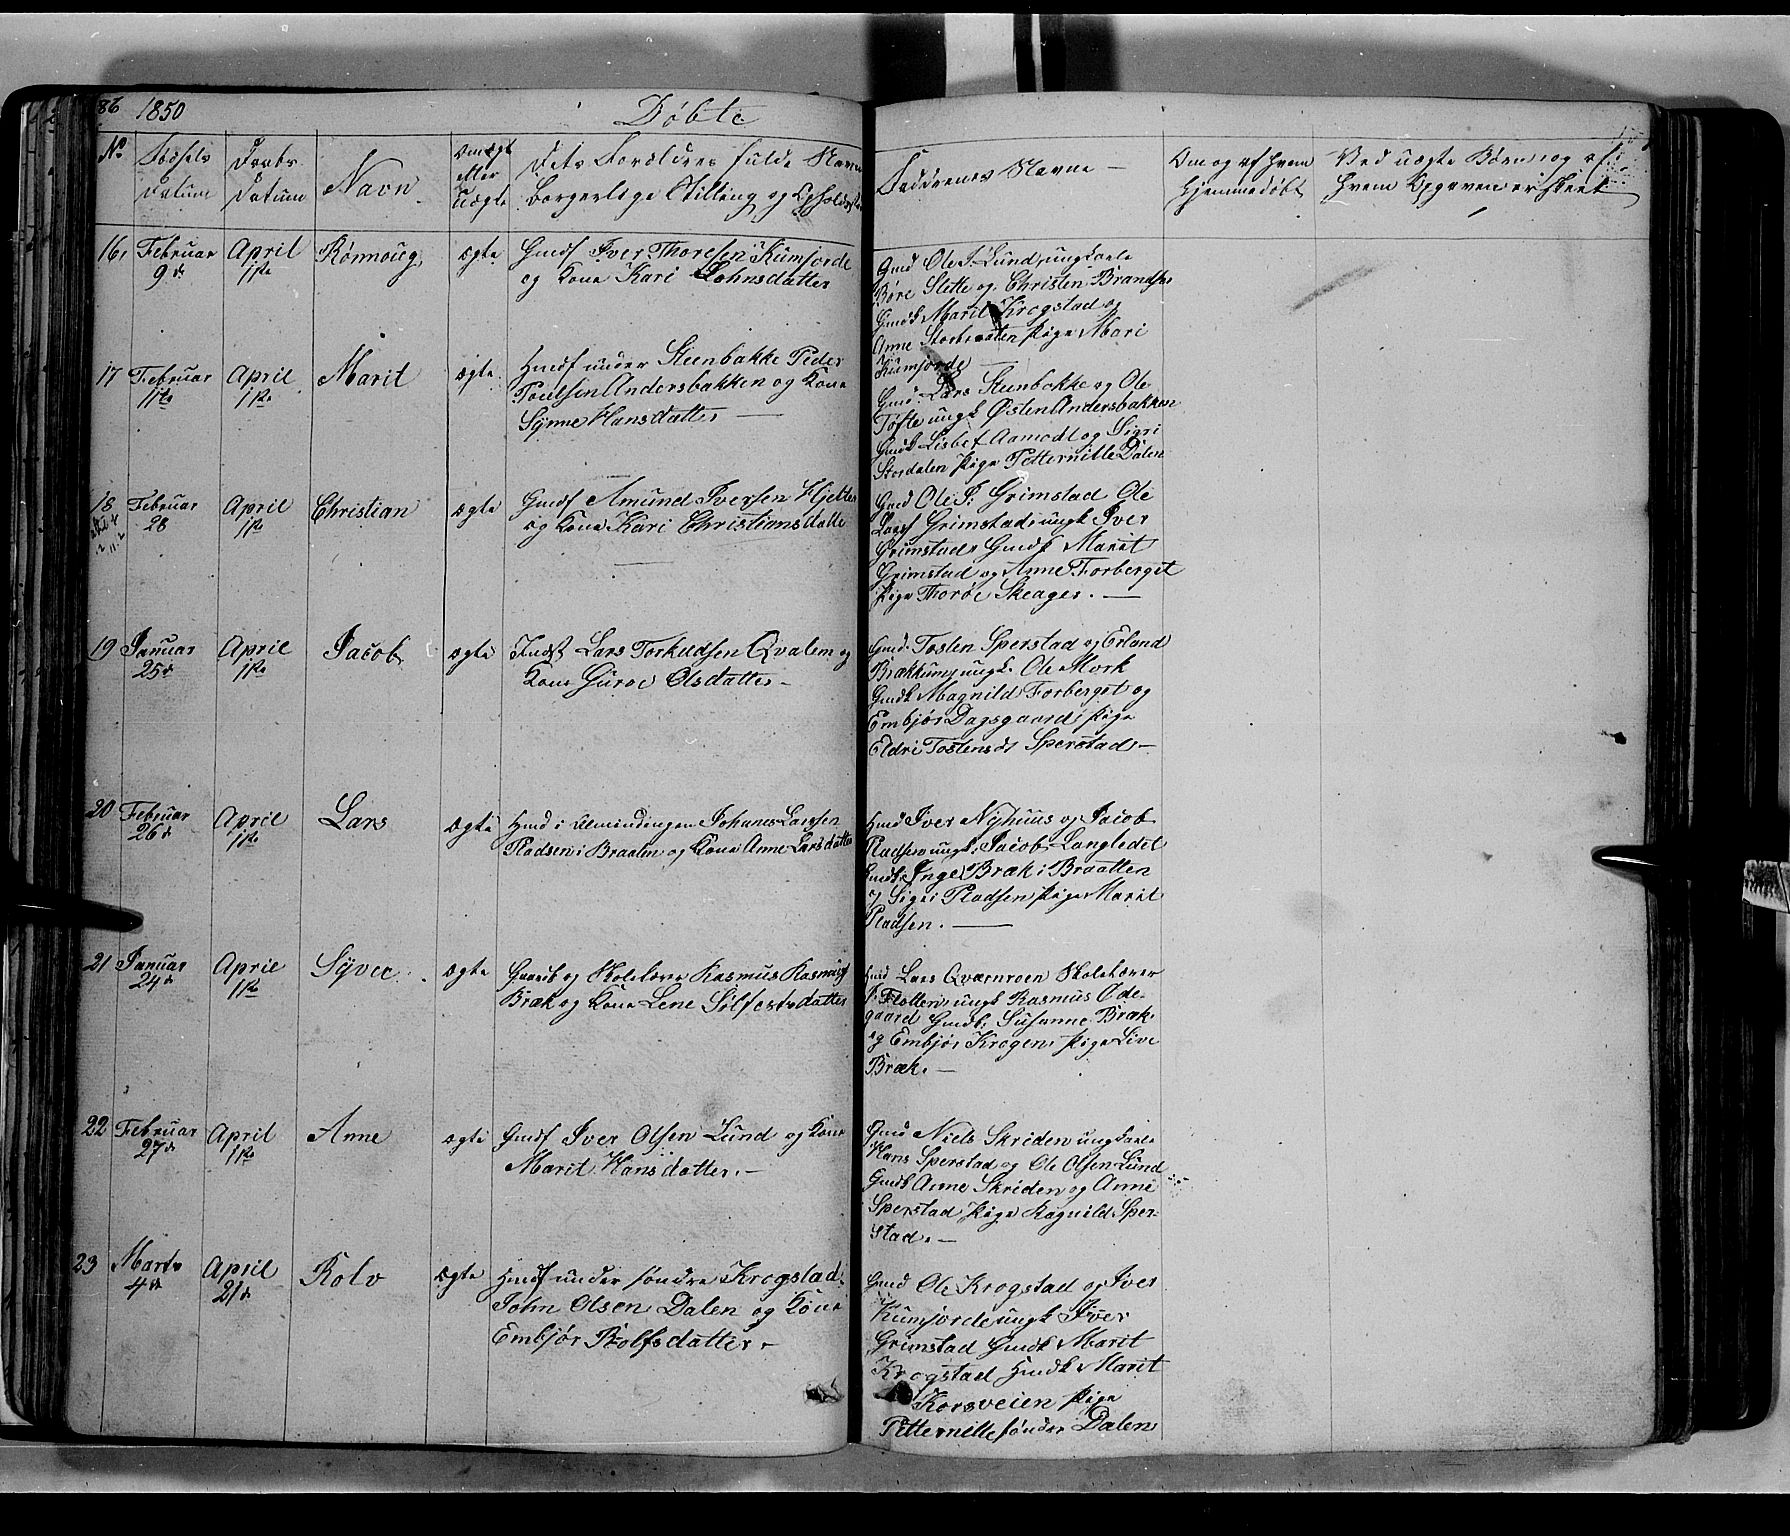 86 1850 Døbte
No. Fødsels Datum Daabs Datum Navn Om ægte eller Uægte Dets Forældres fulde Navne Borgerlige Stilling og Opholdssted Faddrenes Navne Om og af hvem hjemmedøbt Ved uægte Børn, og af hvem Opgaven er skeet
16, Februar 9de April 1ste Rønnoug ægte
Gmdf Iver Thoresen Kumjorde
og Kone Kari Johnsdatter
Gmd Ole J. Lund, ungkarle
Tore Slette og Christen Brandser
Gmdk Marit Krogstad og
Anne Storbraaten Pige Mari
Kumjorde
17 Februar 11te April 1ste Marit ægte
Hmdf under Steenbakke Peder
Poulsen Andersbakken og Kone
Synne Hansdatter
Gmd. Lars Steenbakke og Ole
Tofte ungk Østen Andersbakken
Gmdk Lisbet Aamodt og Sigri
Stordalen Pige Petternille Dalen
18 Februar 28 April 1ste Christian ægte
Gmdf Amund Iversen Hjelle
og Kone Kari Christiansdatte
Gmd Ole P. Grimstad Ole
Larsf Grimstad, ungk Iver
Grimstad, Gmdk Marit
Grimstad og Anne Forberget
Pige Thorøe Skeager.
19 Januar 25de April 1ste Jacob ægte
Indst Lars Torkildsen Qvalem og
Kone Guroe Olsdatter
Gmd. Tosten Sperstad og Erland
Brækkum, ungk. Ole Mork
Gmdk Magnild Forberget og
Embjør Dagsgaard, Pige
Eldri Tostensdr Sperstad
20 Februar 26de April 1ste Lars ægte
Hmd i Almindingen Johannes Larssen
Pladsen i Braaten og Kone Anne Larsdatter
Hmd Iver Nyhuus og Jacob
Pladsen ungk. Jacob Langledet
Gmdk. Inge Bræk i Braatten
og Sigri Pladsen Pige Marit
Pladsen.
21 Januar 24de April 1ste Syver ægte
Gaardb og Skolelærer Rasmus Rasmusf
Bræk og Kone Lene Sølfestsdatter
Hmd Lars Qværnroen Skolelærer
P. Flotten, ungk Rasmus Øde-
gaard Gmdk. Susanne Bræk
og Embjør Krogen, Pige Live
Bræk.
22 Februar 27de April 1ste Anne ægte
Gmdf Iver Olsen Lund og Kone
Marit Hansdatter.
Gmd Niels Skriden ungkarle
Hans Sperstad og Ole Olsen Lund
Gmdk Anne Skriden og Anne
Sperstad Pige Ragnild Sper-
stad.
23 Marts 4de April 21de Rolv ægte
Hmdf under søndre Krogstad
John Olsen Dalen og Kone
Embjør Rolfsdatter
Gmd Ole Krogstad og Iver
Kumjorde ungk Iver
Grimstad Gmdk Marit
Krogstad Hmdk Marit
Korsveien Pige
Petternille sønder Dalen